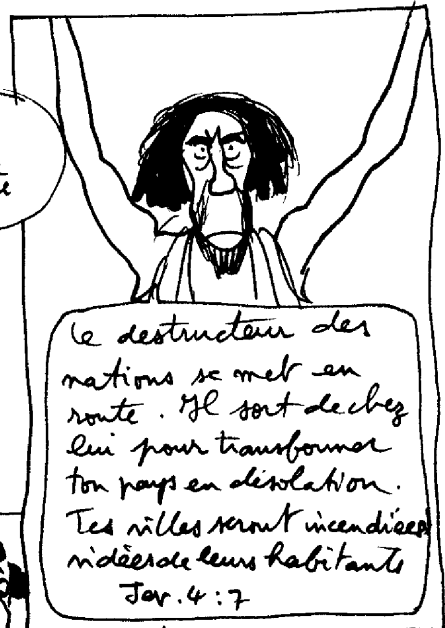 Le destructeur des
nations se met en
route. Il sort de chez
lui pour transformer
ton pays en désolation.
Tes villes seront incendiées
vidées de leurs habitants
Jer. 4:7